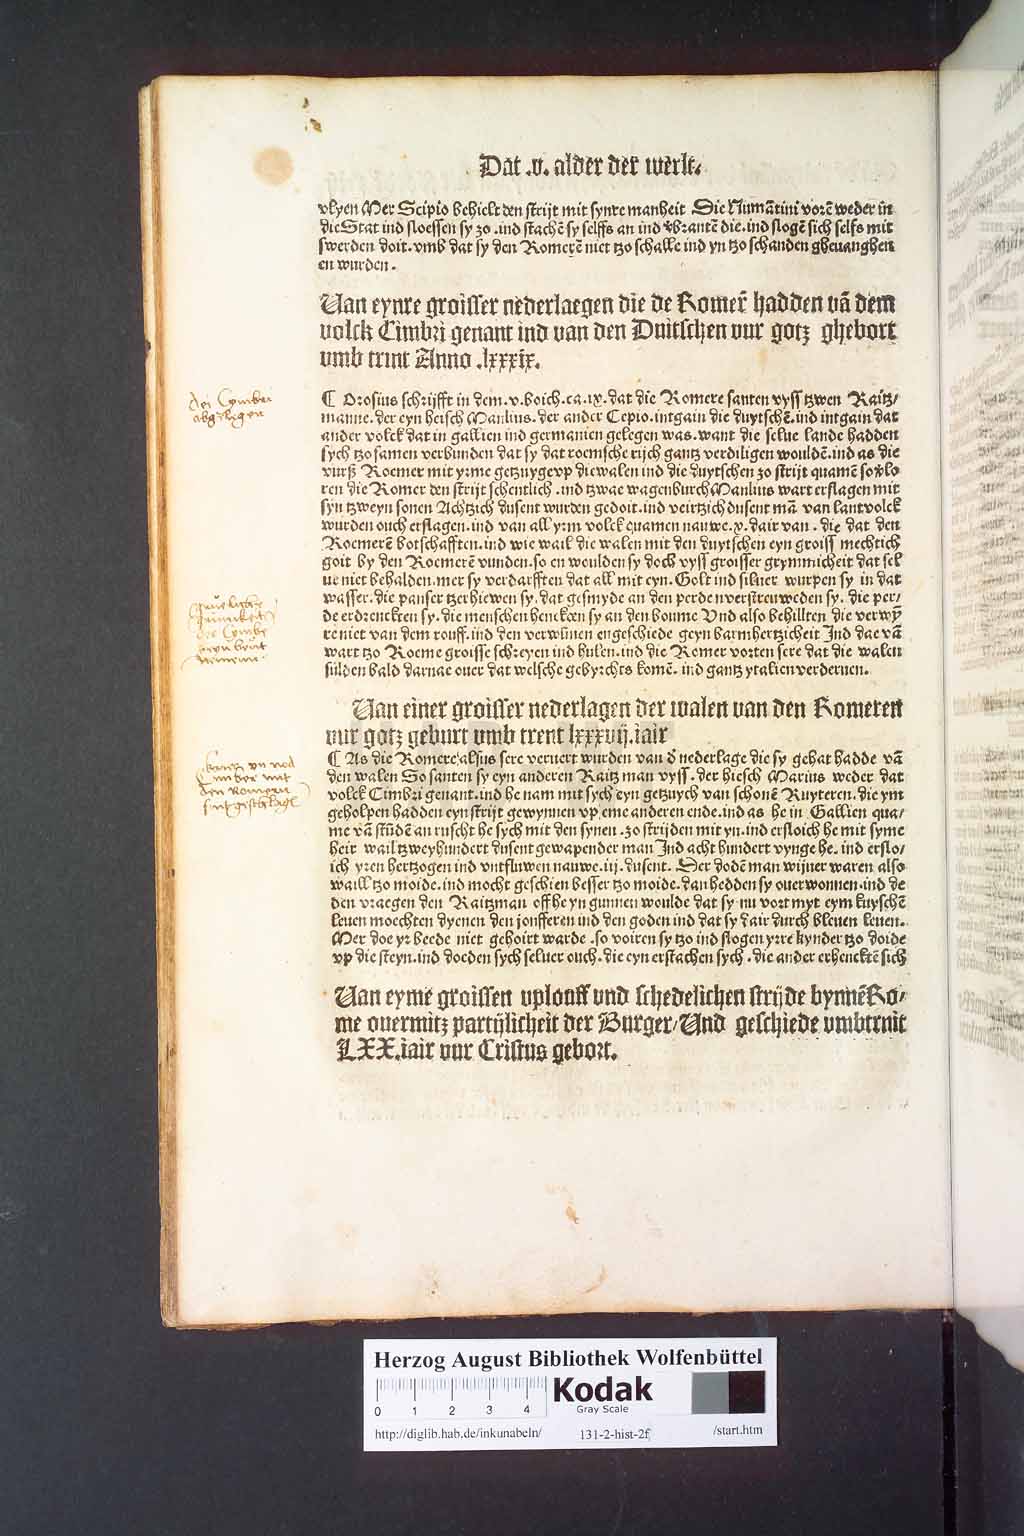 Dat .v. alder der werlt.
vlyen Mer Scipio behielt den strijt mit synre manheit Die Numãtini vorẽ weder in
die Stat ind sloessen sy zo .ind stachẽ sy selffs an ind vbrantẽ die .ind slogẽ sich selfs mit
swerden doit. vmb dat sy den Romerẽ niet tzo schalle ind yn tzo schanden gheuanghen
en wurden.
Uan eynre groisser nederlaegen die de Romer̃ hadden vã dem
volck Cimbri genant ind van den Duitschen vur gotz ghebort
vmb trint Anno .lxxxix.
¶ Orosius schrijfft in dem .v. boich. ca. ix. dat die Romere santen vyss tzwen Raitz/
manne. der eyn heisch Manlius. der ander Cepio. intgain die duytschẽ. ind intgain dat
ander volck dat in gallien ind germanien gelegen was. want die selue lande hadden
sych tzosamen verbunden dat sy dat roemsche rijch gantz verdiligen wouldẽ. ind as die
vurß Roemer mit yrme getzuyge vp die walen ind die duytschen zo strijt quamẽ so vlo
ren die Romer den strijt schentlich .ind tzwae wagenburch Manlius wart erslagen mit
syn tzweyn sonen Achtzich dusent wurden gedoit .ind veirtzich dusent mã van lantvolck
wurden ouch erslagen. ind van all yrm volck quamen nauwe .x. dair van . die dat den
Roemerẽ botschafften. ind wie wail die walen mit den duytschen eyn groiss mechtich
goit by den Roemerẽ vunden. so en woulden sy doch vyss groisser grymmicheit dat sel
ue niet behalden. mer sy verdarfften dat all mit eyn. Golt ind siluer wurpen sy in dat
wasser. die panser tzerhiewen sy. dat gesmyde an den perden verstreuweden sy. die per/
de erdrenckten sy. die menschen henckẽn sy an den boume Vnd also behillten die verwỹ
re niet van dem rouff. ind den verwũnen en geschiede geyn barmhertzicheit Ind dae vã
wart tzo Roeme groisse schreyen ind hulen. ind die Romer vorten sere dat die walen
sulden bald darnae ouer dat welsche gebyrchts komẽ. ind gantz ytalien verderuen.
Uan einer groisser nederlagen der walen van den Romeren
vur gotz geburt vmb trent lxxxvij. iair
¶ As die Romere alsus sere veruert wurden van d̃ nederlage die sy gehat hadde vã
den walen So santen sy eyn anderen Raitzman vyss. der hiesch Marius weder dat
volck Cimbri genant. ind he nam mit sych eyn getzuych van schonẽ Ruyteren. die ym
geholpen hadden eyn strijt gewynnen vp eme anderen ende. ind as he in Gallien qua/
me vã stũdẽ an ruscht he sych mit den synen .zo strijden mit yn. ind ersloich he mit syme
heir wail tzweyhundert dusent gewapender man Ind acht hundert vynge he. ind erslo/
ich yren hertzogen ind vntfluwen nauwe .iij. dusent. Der dodẽ man wijuer waren also
waill tzo moide. ind mocht geschien besser tzo moide. dan hedden sy ouerwonnen .ind de
den vraegen den Raitzman off he yn gunnen woulde dat sy nu vort myt eym kuyschẽ
leuen moechten dyenen den jonfferen ind den goden ind dat sy dair durch bleuen leuen.
Mer doe yr beede niet gehoirt warde .so voiren sy tzo ind slogen yrre kynder tzo doide
vp die steyn. ind doeden sych seluer ouch. die eyn erstachen sych . die ander erhencktẽ sich
Uan eymẽ groissen vplouff vnd schedelichen strijde bynnẽ Ro/
me ouermitz partijlicheit der Burger/ Und geschiede vmbtrnit
LXX. iair vur Cristus gebort.
Herzog August Bibliothek Wolfenbüttel
0 1 2 3 4
Kodak
Gray Scale
http://diglib.hab.de/inkunabeln/ 131-2-hist-2f /start.htm